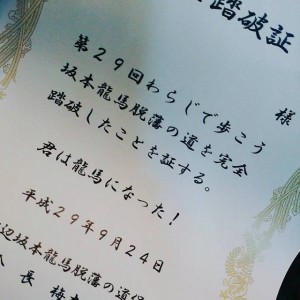 踏破証
様
第29回わらじで歩こう
坂本龍馬脱藩の道を完全
踏破したことを証する。
君は龍馬になった！
平成29年9月24日
辺坂本龍馬脱藩の道保
会長 梅